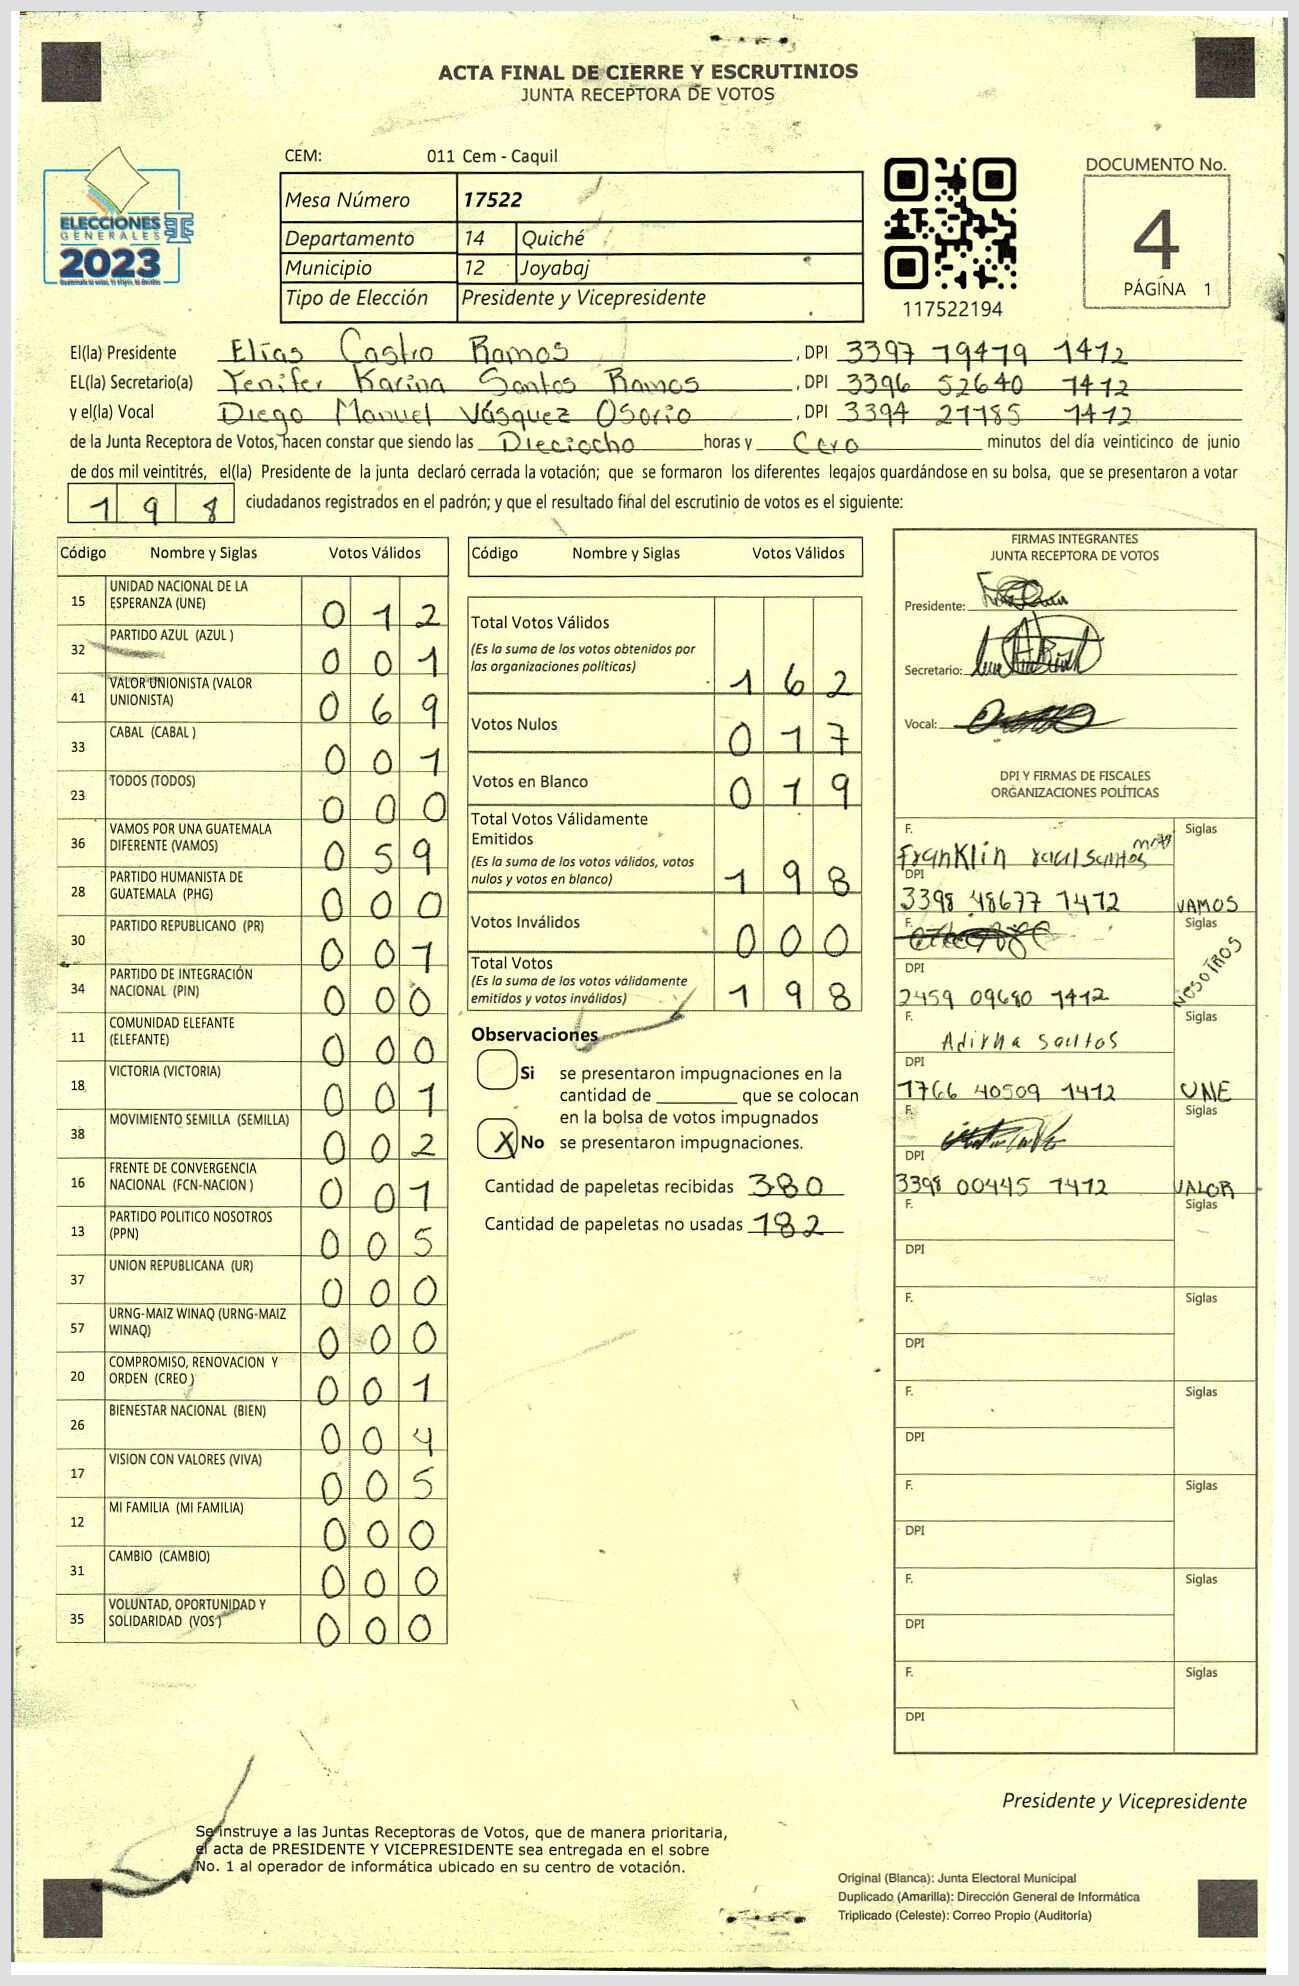 ACTA FINAL DE CIERRE Y ESCRUTINIOS
JUNTA RECEPTORA DE VOTOS
CEM: 011 Cem - Caquil
DOCUMENTO No.
4
PÁGINA 1
ELECCIONES
GENERALES
2023
Mesa Número 17522
Departamento 14 Quiché
Municipio 12 Joyabaj
Tipo de Elección Presidente y Vicepresidente
117522194
El(la) Presidente Elías Castro Ramos , DPI 3397 19479 1412
EL(la) Secretario(a) Yenifer Karina Santos Ramos , DPI 3396 52640 1412
y el(la) Vocal Diego Manuel Vásquez Osorio , DPI 3394 27785 1412
de la Junta Receptora de Votos, hacen constar que siendo las Dieciocho horas y Cero minutos del día veinticinco de junio
de dos mil veintitrés, el(la) Presidente de la junta declaró cerrada la votación; que se formaron los diferentes legajos guardándose en su bolsa, que se presentaron a votar
1 9 8 ciudadanos registrados en el padrón; y que el resultado final del escrutinio de votos es el siguiente:
Código Nombre y Siglas Votos Válidos
15 UNIDAD NACIONAL DE LA ESPERANZA (UNE) 0 1 2
32 PARTIDO AZUL (AZUL ) 0 0 1
41 VALOR UNIONISTA (VALOR UNIONISTA) 0 6 9
33 CABAL (CABAL ) 0 0 1
23 TODOS (TODOS) 0 0 0
36 VAMOS POR UNA GUATEMALA DIFERENTE (VAMOS) 0 5 9
28 PARTIDO HUMANISTA DE GUATEMALA (PHG) 0 0 0
30 PARTIDO REPUBLICANO (PR) 0 0 1
34 PARTIDO DE INTEGRACIÓN NACIONAL (PIN) 0 0 0
11 COMUNIDAD ELEFANTE (ELEFANTE) 0 0 0
18 VICTORIA (VICTORIA) 0 0 1
38 MOVIMIENTO SEMILLA (SEMILLA) 0 0 2
16 FRENTE DE CONVERGENCIA NACIONAL (FCN-NACION ) 0 0 1
13 PARTIDO POLITICO NOSOTROS (PPN) 0 0 5
37 UNION REPUBLICANA (UR) 0 0 0
57 URNG-MAIZ WINAQ (URNG-MAIZ WINAQ) 0 0 0
20 COMPROMISO, RENOVACION Y ORDEN (CREO ) 0 0 1
26 BIENESTAR NACIONAL (BIEN) 0 0 4
17 VISION CON VALORES (VIVA) 0 0 5
12 MI FAMILIA (MI FAMILIA) 0 0 0
31 CAMBIO (CAMBIO) 0 0 0
35 VOLUNTAD, OPORTUNIDAD Y SOLIDARIDAD (VOS ) 0 0 0
Código Nombre y Siglas Votos Válidos
Total Votos Válidos
(Es la suma de los votos obtenidos por
las organizaciones políticas) 1 6 2
Votos Nulos 0 1 7
Votos en Blanco 0 1 9
Total Votos Válidamente
Emitidos
(Es la suma de los votos válidos, votos
nulos y votos en blanco) 1 9 8
Votos Inválidos 0 0 0
Total Votos
(Es la suma de los votos válidamente
emitidos y votos inválidos) 1 9 8
Observaciones
Si se presentaron impugnaciones en la
cantidad de ________ que se colocan
en la bolsa de votos impugnados
X No se presentaron impugnaciones.
Cantidad de papeletas recibidas 380
Cantidad de papeletas no usadas 182
FIRMAS INTEGRANTES
JUNTA RECEPTORA DE VOTOS
Presidente:
Secretario:
Vocal:
DPI Y FIRMAS DE FISCALES
ORGANIZACIONES POLÍTICAS
F. Siglas
Franklin raul santos
DPI
3398 48677 1412 VAMOS
F. Siglas
DPI NOSOTROS
2459 09680 1412
F. Siglas
Santos
DPI
1766 40509 1412 UNE
F. Siglas
DPI
3398 00445 1412 VALOR
F. Siglas
DPI
F. Siglas
DPI
F. Siglas
DPI
F. Siglas
DPI
F. Siglas
DPI
F. Siglas
DPI
Presidente y Vicepresidente
Se instruye a las Juntas Receptoras de Votos, que de manera prioritaria,
el acta de PRESIDENTE Y VICEPRESIDENTE sea entregada en el sobre
No. 1 al operador de informática ubicado en su centro de votación.
Original (Blanca): Junta Electoral Municipal
Duplicado (Amarilla): Dirección General de Informática
Triplicado (Celeste): Correo Propio (Auditoría)